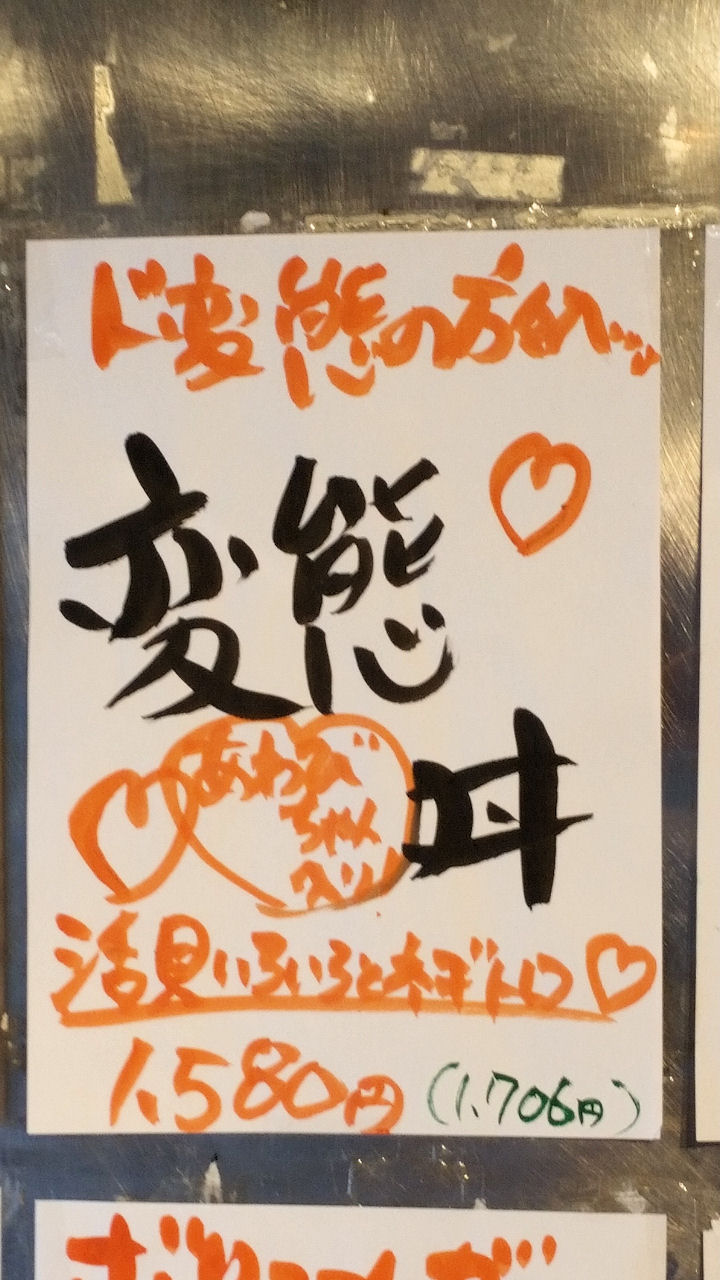 ド変態の方創へ…
変態
あわび
ちゃん
入り!
丼
活貝いろいろとネギトロ
1.580円 (1.706円)